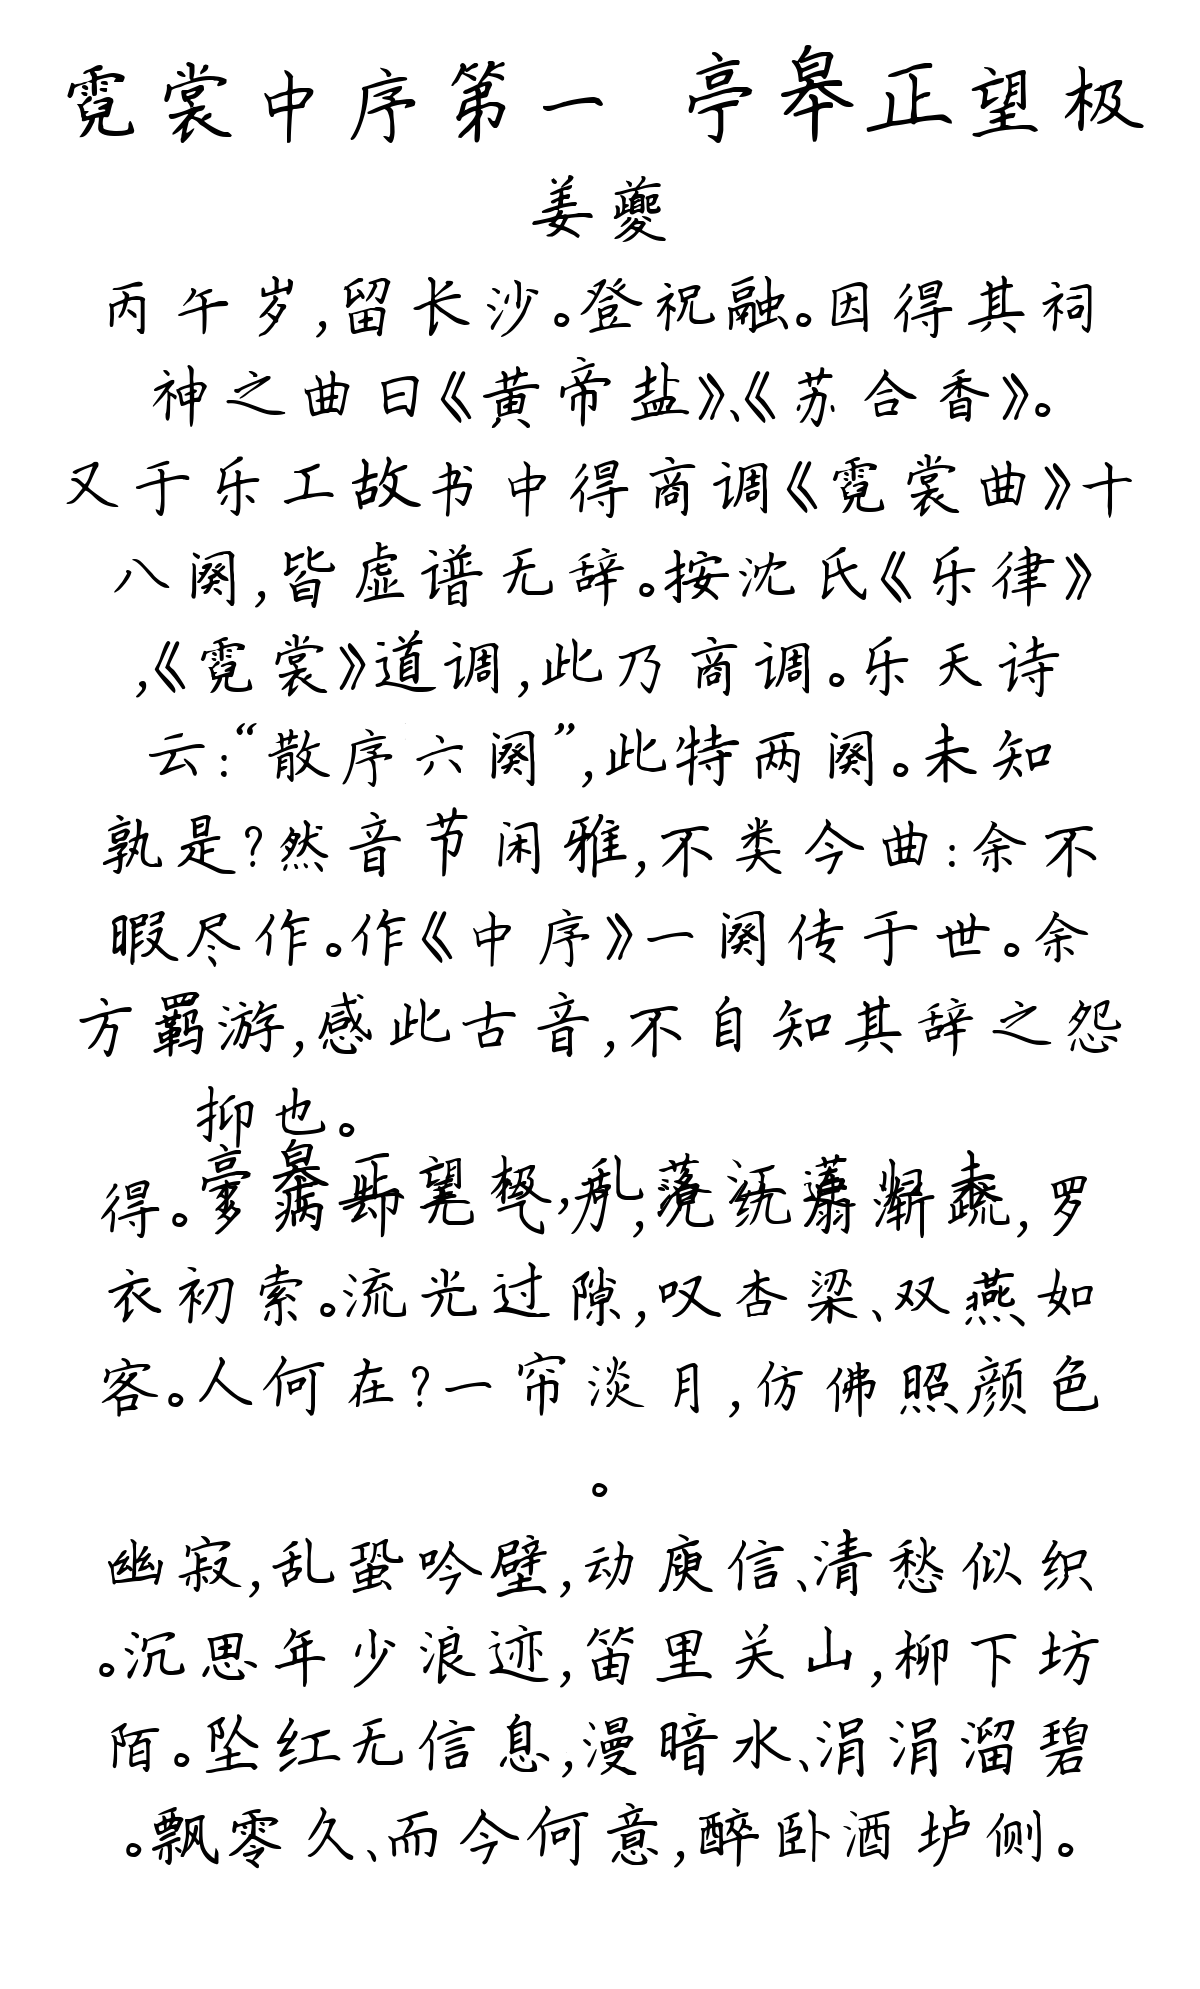 霓裳中序第一 亭皋正望极
姜夔
丙午岁,留长沙。登祝融。因得其祠
神之曲曰《黄帝盐》、《苏合香》。
又于乐工故书中得商调《霓裳曲》十
八阕,皆虚谱无辞。按沈氏《乐律》
,《霓裳》道调,此乃商调。乐天诗
云:“散序六阕”,此特两阕。未知
孰是?然音节闲雅,不类今曲:余不
暇尽作。作《中序》一阕传于世。余
方羁游,感此古音,不自知其辞之怨
抑也。
亭皋正望极,乱落江莲归未
得。多病却无气力,况纨扇渐疏,罗
衣初索。流光过隙,叹杏梁、双燕如
客。人何在?一帘淡月,仿佛照颜色
。
幽寂,乱蛩吟壁,动庾信、清愁似织
。沉思年少浪迹,笛里关山,柳下坊
陌。坠红无信息,漫暗水、涓涓溜碧
。飘零久、而今何意,醉卧酒垆侧。